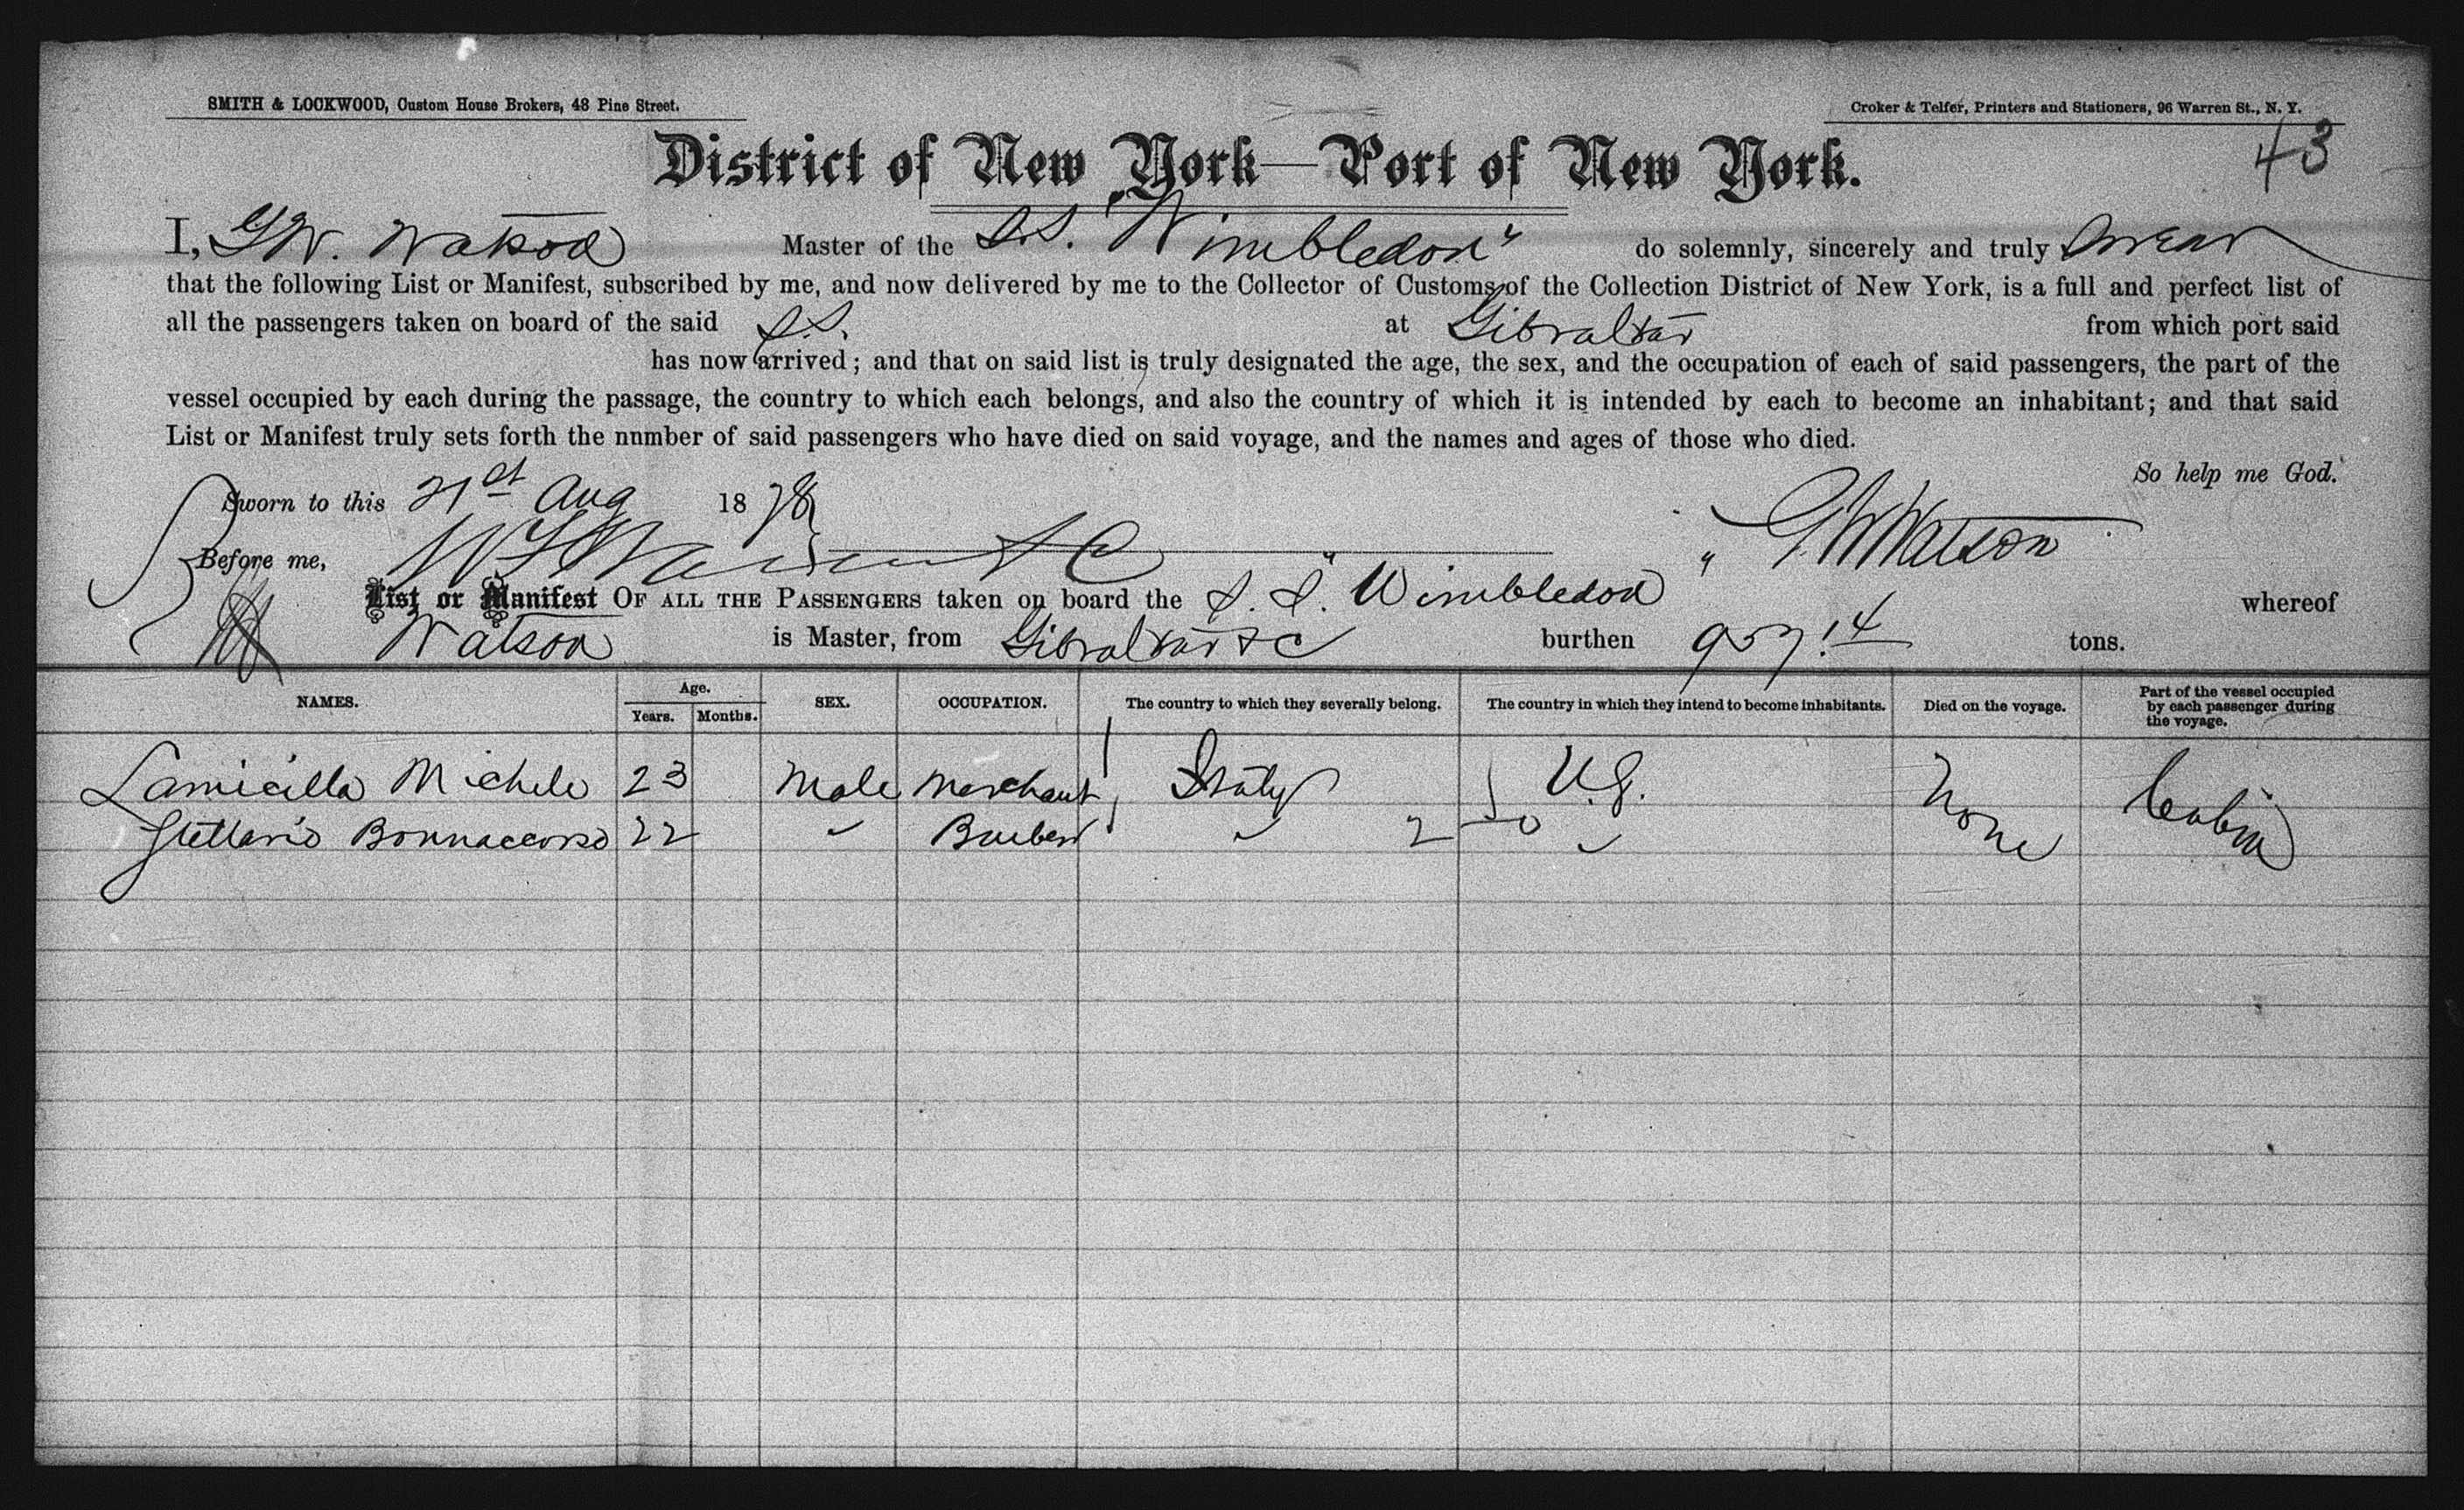 SMITH & LOCKWOOD, Custom House Brokers, 48 Pine Street.
Croker & Telfer, Printers and Stationers, 96 Warren St., N. Y.
43
District of New York—Port of New York.
I, G W. Watson Master of the S.S. "Wimbledon" do solemnly, sincerely and truly swear
that the following List or Manifest, subscribed by me, and now delivered by me to the Collector of Customs of the Collection District of New York, is a full and perfect list of
all the passengers taken on board of the said S.S. at Gibraltar from which port said
has now arrived; and that on said list is truly designated the age, the sex, and the occupation of each of said passengers, the part of the
vessel occupied by each during the passage, the country to which each belongs, and also the country of which it is intended by each to become an inhabitant; and that said
List or Manifest truly sets forth the nnmber of said passengers who have died on said voyage, and the names and ages of those who died.
So help me God.
Sworn to this 21st Aug 1878
G W Watson
Before me,
List or Manifest OF ALL THE PASSENGERS taken on board the S. S. "Wimbledon" whereof
Watson is Master, from Gibraltar & c burthen 957.14 tons.
NAMES. Age. Years. Months. SEX. OCCUPATION. The country to which they severally belong. The country in which they intend to become inhabitants. Died on the voyage. Part of the vessel occupied by each passenger during the voyage.
Lamicilla Michele 23 Male Merchant Italy U.S. None Cabin
Stellario Bonnaccorso 22 " Barber " 2 "